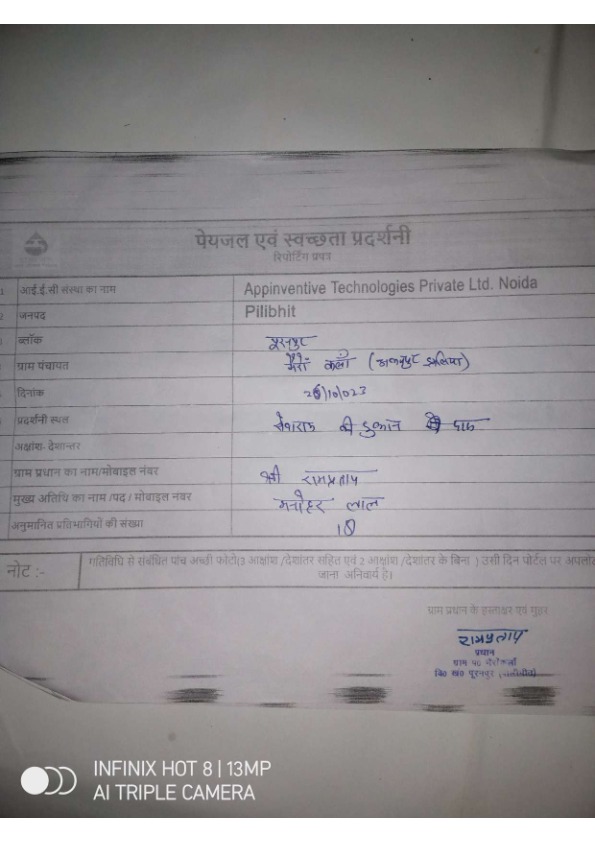 पेयजल एवं स्वच्छता प्रदर्शनी
रिपोर्टिंग प्रपत्र
1 आई.ई.सी संस्था का नाम Appinventive Technologies Private Ltd. Noida
2 जनपद Pilibhit
ब्लॉक पूरनपुर
ग्राम पंचायत कलाँ
दिनांक 26/10/023
प्रदर्शनी स्थल की दुकान के पास
अक्षांश- देशान्तर
ग्राम प्रधान का नाम/मोबाइल नंबर श्री रामप्रताप
मुख्य अतिथि का नाम /पद / मोबाइल नंबर मनोहर लाल
अनुमानित प्रतिभागियों की संख्या
नोट :- गतिविधि से संबंधित पांच अच्छी फोटो(3 आक्षांश /देशांतर सहित एवं 2 आक्षांश /देशांतर के बिना ) उसी दिन पोर्टल पर अपलो
जाना अनिवार्य है।
ग्राम प्रधान के हस्ताक्षर एवं मुहर
रामप्रताप
प्रधान
ग्राम पं0
वि0 खं0 पूरनपुर (पीलीभीत)
INFINIX HOT 8 | 13MP
AI TRIPLE CAMERA